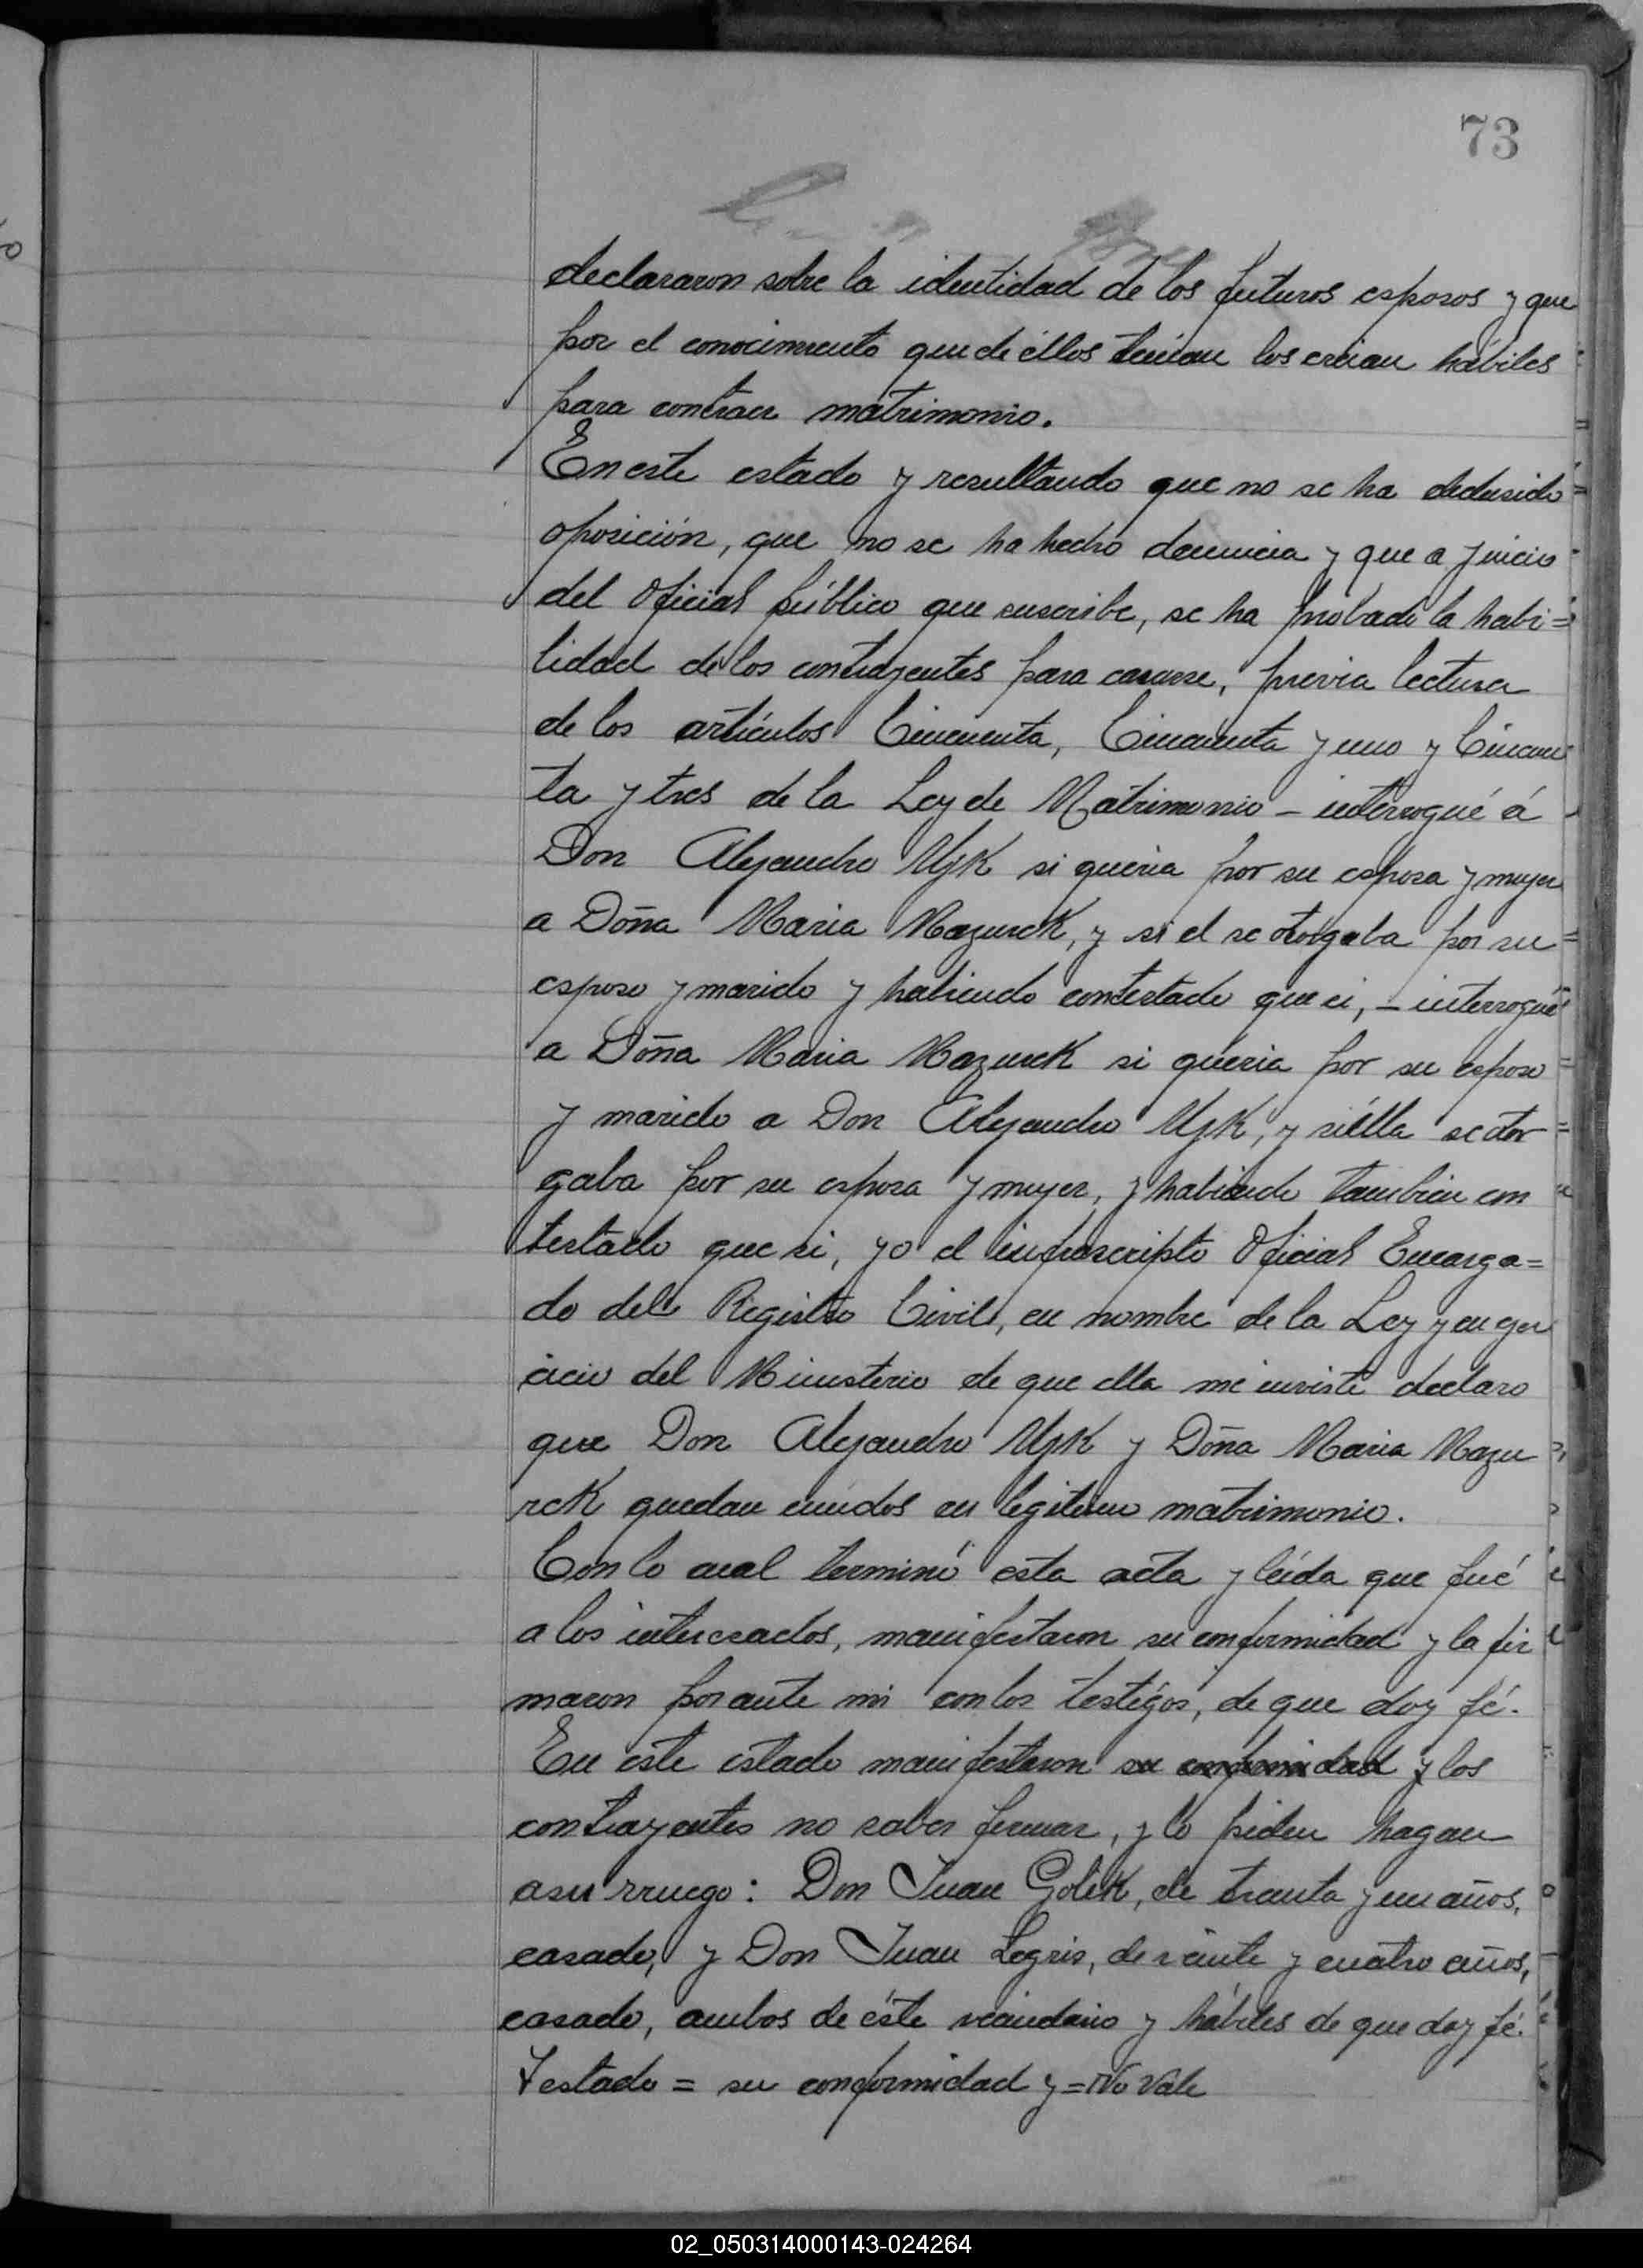 73
declararon sobre la identidad de los futuros esposos y que
por el conocimiento que de éllos tenian los creian hábiles
para contraer matrimonio.
En este estado y resultando que no se ha deducido
oposición, que no se ha hecho denuncia y que a juicio
del Oficial público que suscribe, se ha probado la habi=
lidad de los contrayentes para casarse, previa lectura
de los artículos Cincuenta, Cincuenta y uno y Cincuen
ta y tres de la Ley de Matrimonio - interrogué á
Don Alejandro Ujk si queria por su esposa y mujer
a Doña Maria Mazurek, y si el se otorgaba por su
esposo y marido y habiendo contestado que si, - interrogué
a Doña Maria Mazurek si queria por su esposo
y marido a Don Alejandro Ujk, y si élla se otor
gaba por su esposa y mujer, y habiendo tambien con
testado que si, yo el infrascripto Oficial Encarga=
do del Registro Civil, en nombre de la Ley y en ejer
cicio del Ministerio de que ella me inviste declaro
que Don Alejandro Ujk y Doña Maria Mazu
rek quedan unidos en legitimo matrimonio.
Con lo cual terminó esta acta y leída que fué
a los interesados, manifestaron su conformidad y la fir
maron por ante mi con los testigos, de que doy fé.
En este estado manifestaron su conformidad y los
contrayentes no saber firmar, y lo piden hagan
a su rruego: Don Juan Golek, de treinta y un años,
casado, y Don Juan Legris, de veinte y cuatro años,
casado, ambos de éste vecindario y hábiles de que doy fé.
Testado = su conformidad y = No Vale
02_050314000143-024264